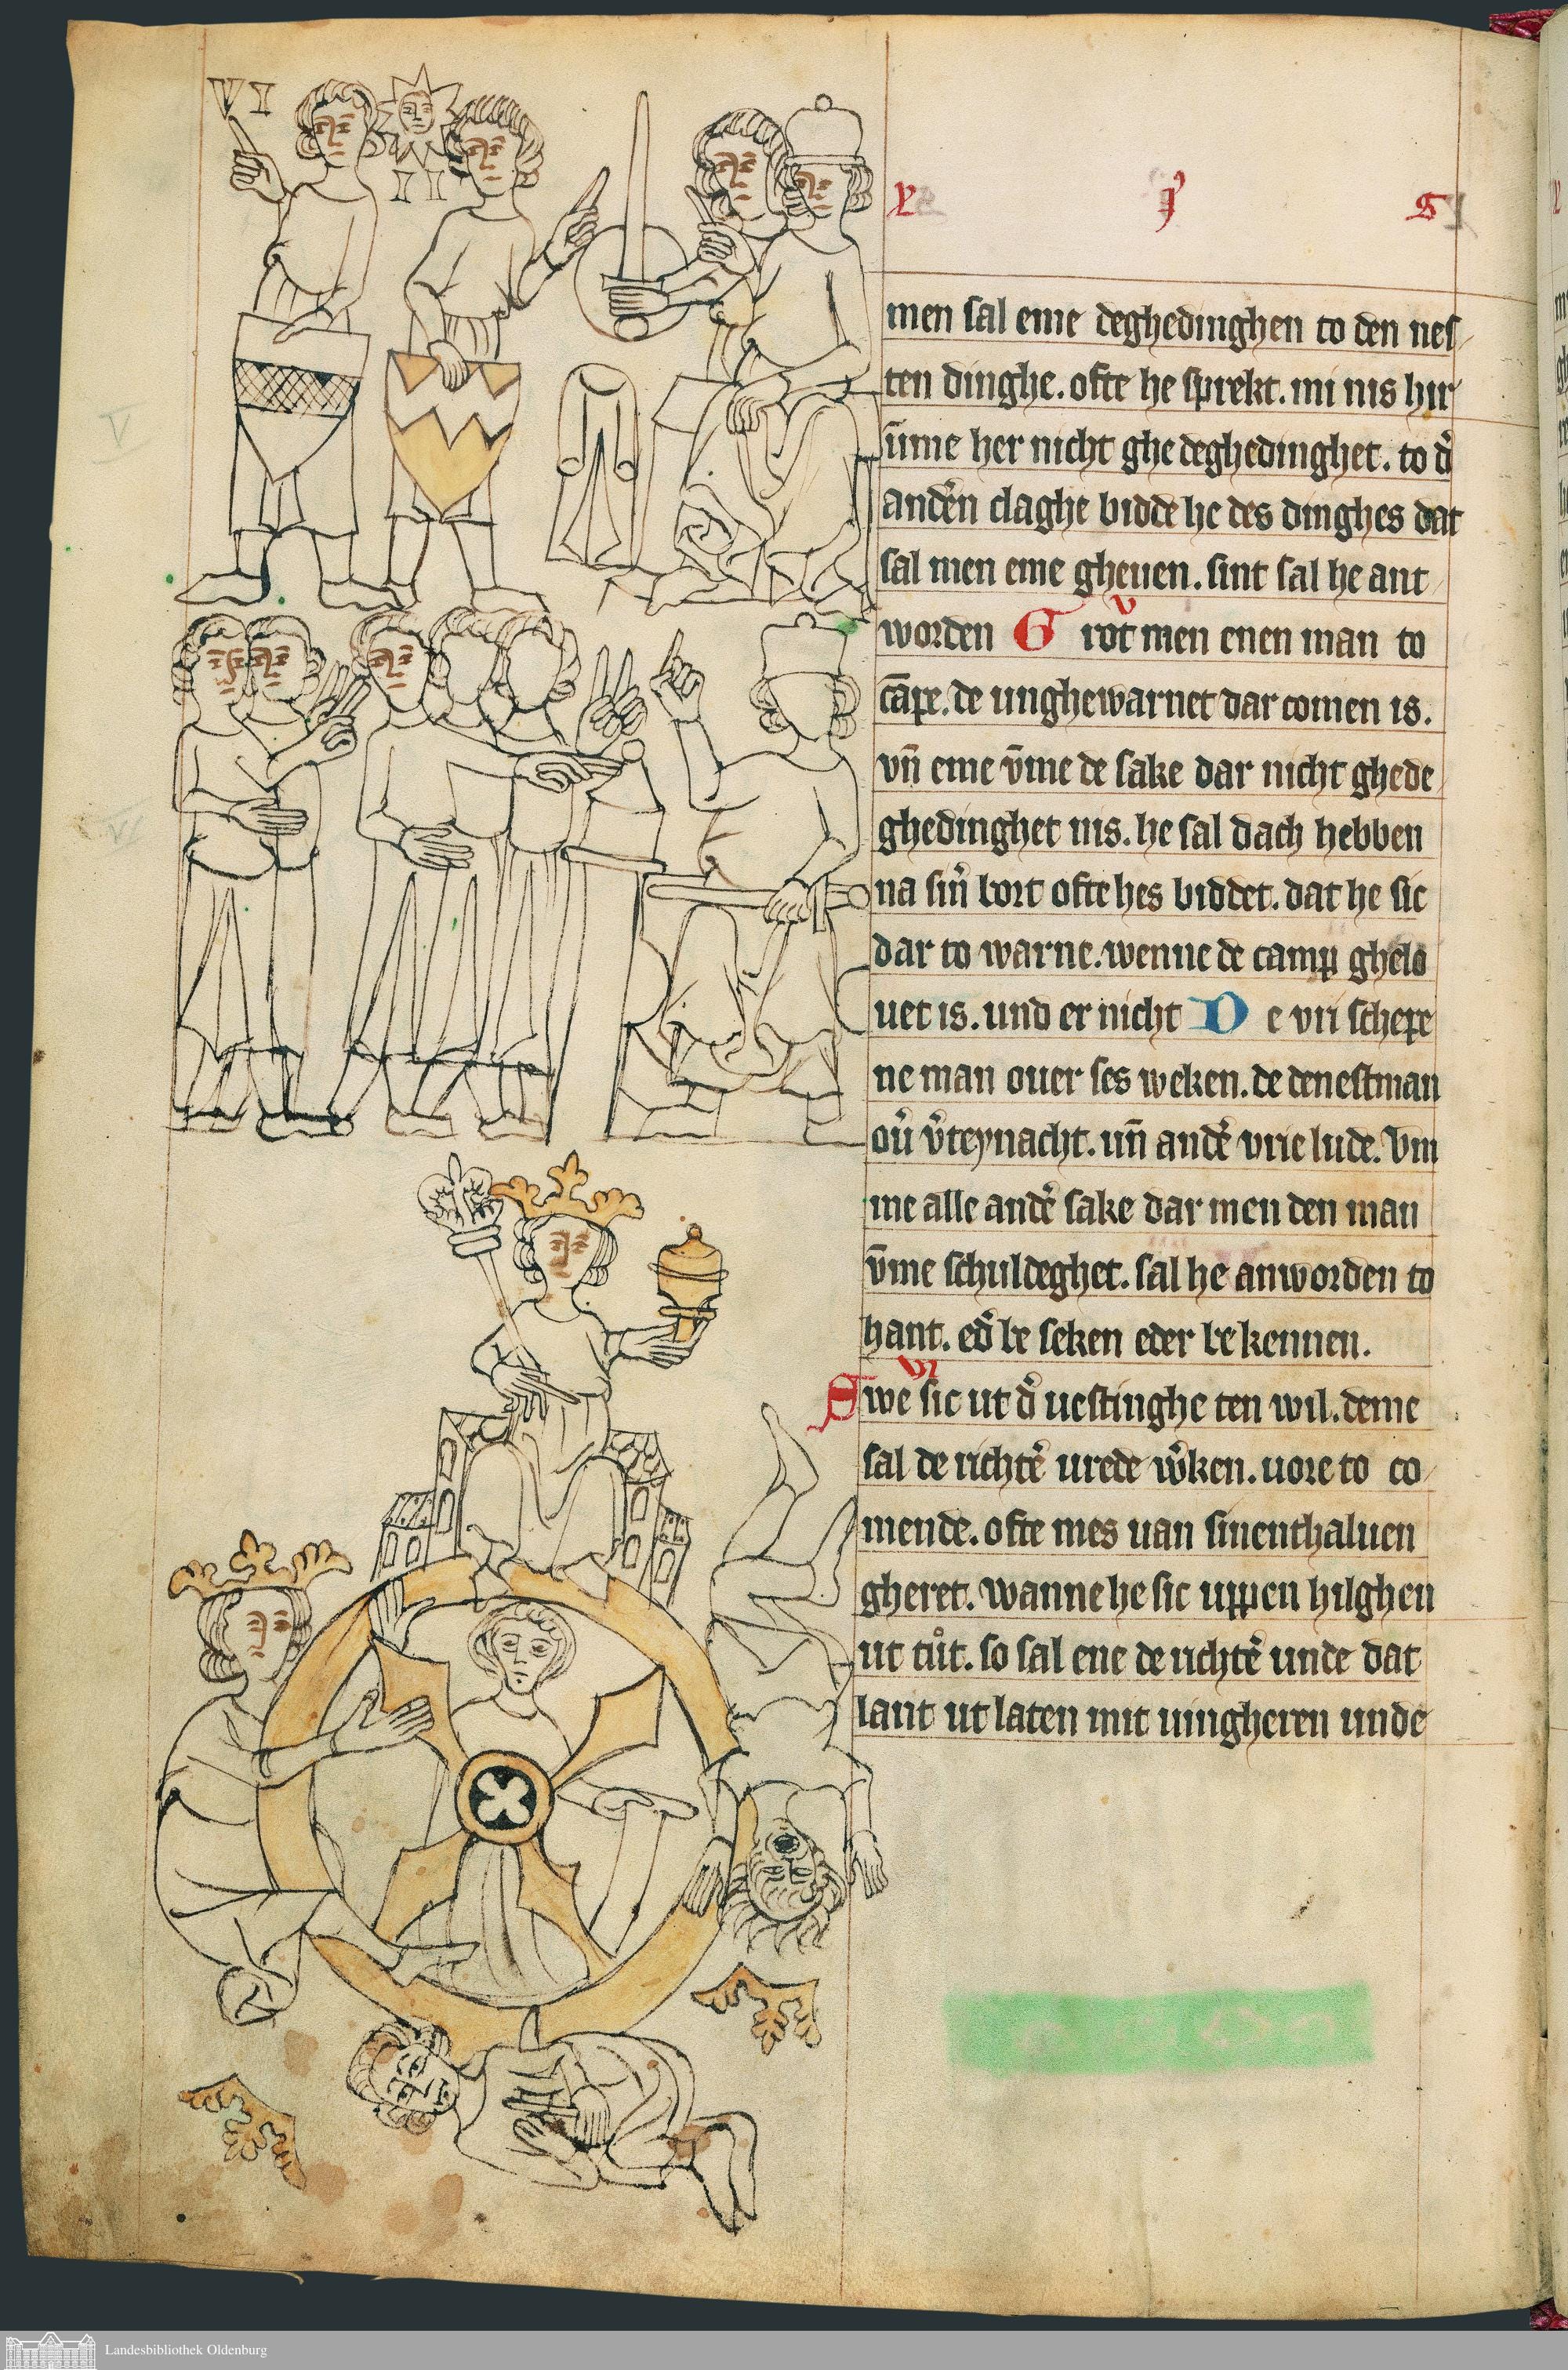 VI
II
men sal eme deghedinghen to den nes
ten dinghe. ofte he sprekt. mi nis hir
ūme her nicht ghe deghedinghet. to d᷑
anden claghe bidde he des dinghes dat
sal men eme gheuen. sint sal he ant
worden G rot men enen man to
cāpe. de unghewarnet dar comen is.
vn̄ eme v̄me de sake dar nicht ghede
ghedinghet nis. he sal dach hebben
na sin᷑ bort ofte hes biddet. dat he sic
dar to warne. wenne de camp ghelo
uet is. und er nicht D e vri schepe
ne man ouer ses weken. de denestman
ou᷑ v᷑teynacht. un̄ and᷑e vrie lude. vm
me alle and᷑e sake dar men den man
v̄me schuldeghet. sal he anworden to
hant. ed᷑ be seken eder bekennen.
v
vi
Swe sic ut d᷑ uestinghe ten wil. deme
sal de richt᷑e urede w᷑ken. uore to co
mende. ofte mes uan sinenthaluen
gheret. wanne he sic uppen hilghen
ut tůt. so sal ene de richt᷑e unde dat
lant ut laten mit uingheren unde
Landesbibliothek Oldenburg